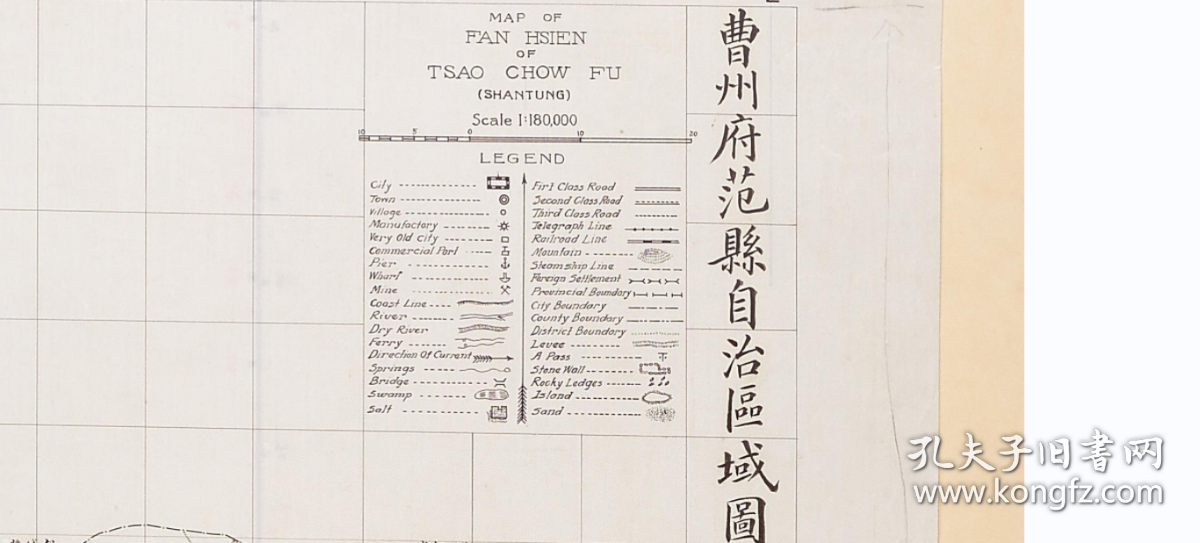 MAP OF
FAN HSIEN
OF
TSAO CHOW FU
(SHANTUNG)
Scale 1:180,000
10 5 0 10 20
LEGEND
City
Town
Village
Manufactory
Very Old City
Commercial Port
Pier
Wharf
Mine
Coast Line
River
Dry River
Ferry
Direction Of Current
Springs
Bridge
Swamp
Salt
Firt Class Road
Second Class Road
Third Class Road
Telegraph Line
Railroad Line
Mountain
Steamship Line
Foreign Settlement
Provincial Boundary
City Boundary
County Boundary
District Boundary
Levee
A Pass
Stone Wall
Rocky Ledges
Island
Sand
曹州府范縣自治區域圖
孔夫子旧书网
www.kongfz.com